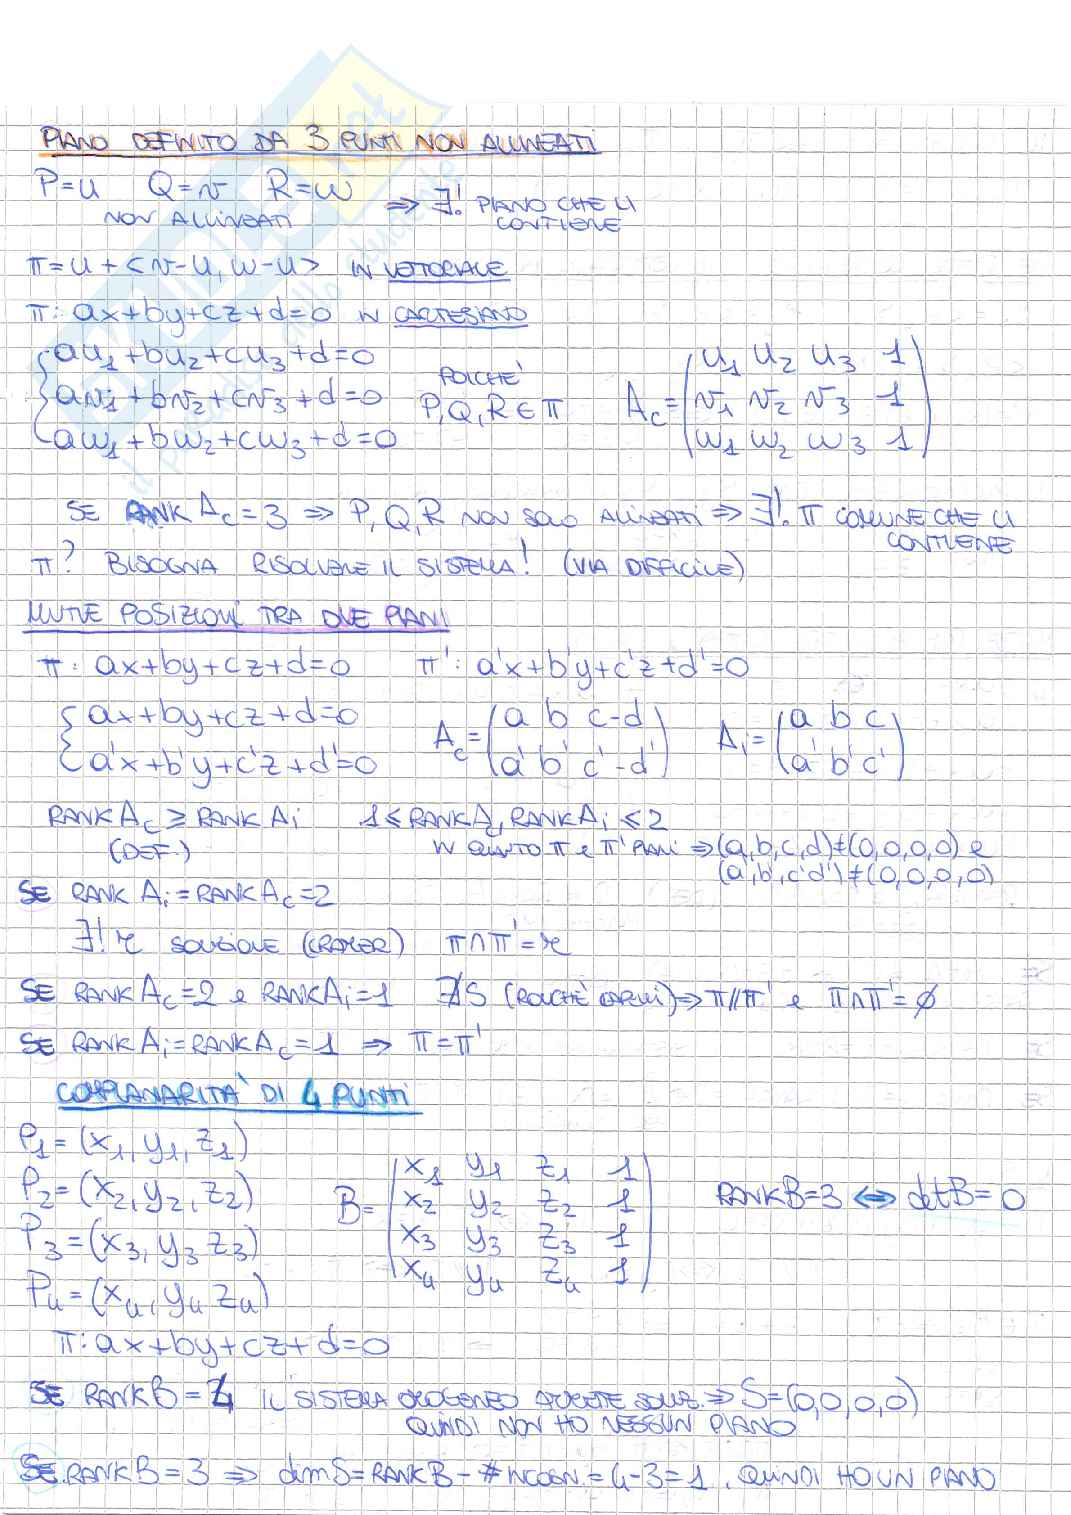 PIANO DEFINITO DA 3 PUNTI NON ALLINEATI
P=u Q=v R=w ⇒ ∃! PIANO CHE LI
NON ALLINEATI CONTIENE
π=u+<v-u, w-u> IN VETTORIALE
π: ax+by+cz+d=0 IN CARTESIANO
au₁+bu₂+cu₃+d=0
av₁+bv₂+cv₃+d=0
aw₁+bw₂+cw₃+d=0
POICHÈ
P,Q,R ∈ π
Ac=
u₁ u₂ u₃ 1
v₁ v₂ v₃ 1
w₁ w₂ w₃ 1
SE RANK Ac=3 ⇒ P,Q,R NON SONO ALLINEATI ⇒ ∃! π COMUNE CHE LI
CONTIENE
π? BISOGNA RISOLVERE IL SISTEMA! (VIA DIFFICILE)
MUTUE POSIZIONI TRA DUE PIANI
π: ax+by+cz+d=0 π': a'x+b'y+c'z+d'=0
ax+by+cz+d=0
a'x+b'y+c'z+d'=0
Ac=
a b c -d
a' b' c' -d'
Ai=
a b c
a' b' c'
RANK Ac ≥ RANK Ai 1≤RANK Ac, RANK Ai≤2
(DEF.) IN QUANTO π e π' PIANI ⇒ (a,b,c,d)≠(0,0,0,0) e
(a',b',c'd')≠(0,0,0,0)
SE RANK Ai=RANK Ac=2
∃! r SOLUZIONE (CRAMER) π∩π'=r
SE RANK Ac=2 e RANK Ai=1 ∄S ⇒ π//π' e π∩π'=∅
SE RANK Ai=RANK Ac=1 ⇒ π=π'
COMPLANARITÀ DI 4 PUNTI
P₁=(x₁,y₁,z₁)
P₂=(x₂,y₂,z₂)
P₃=(x₃,y₃ z₃)
P₄=(x₄,y₄ z₄)
B=
x₁ y₁ z₁ 1
x₂ y₂ z₂ 1
x₃ y₃ z₃ 1
x₄ y₄ z₄ 1
RANK B=3 ⇔ det B=0
π: ax+by+cz+d=0
SE RANK B=4 IL SISTEMA OMOGENEO AMMETTE SOLUZ. ⇒ S=(0,0,0,0)
QUINDI NON HO NESSUN PIANO
SE RANK B=3 ⇒ dim S=RANK B-#INCOGN.=4-3=1. QUINDI HO UN PIANO